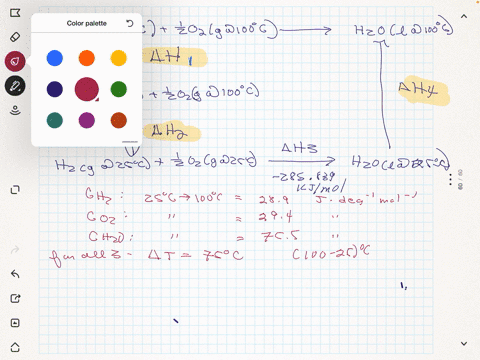 Color palette
) + ½O₂(g@100°C) → H₂O(l@100°C)
ΔH₁
+ ½O₂(g@100°C)
ΔH₄
ΔH₂
ΔH₃
H₂(g@25°C) + ½O₂(g@25°C) → H₂O(l@25°C)
-285.839
KJ/mol
CH₂: 25°C→100°C = 28.9 J·deg⁻¹mol⁻¹
CO₂: " = 29.4 "
CH₂O: " = 75.5 "
for all 3 - ΔT = 75°C (100-25)°C